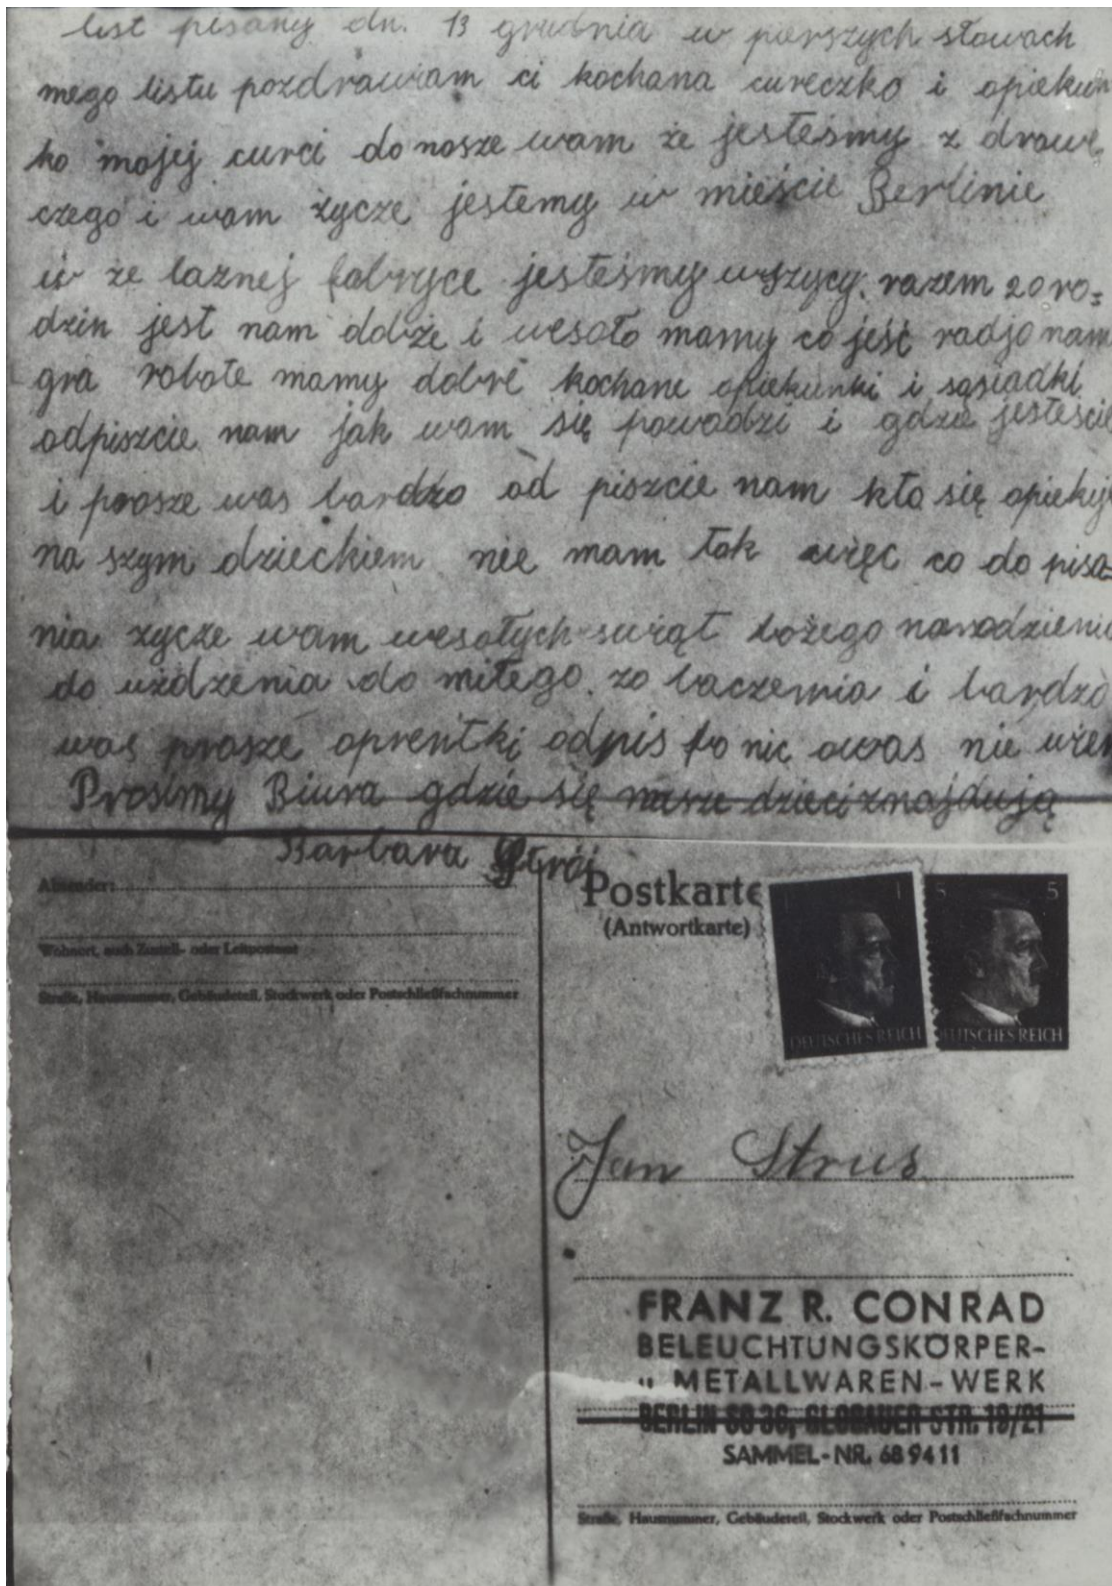 list pisany dn. 13 grudnia w pierszych słowach
mego listu pozdrawiam ci kochana cureczko i opiekun
ko mojej curci do nosze wam że jesteśmy z drowi
czego i wam życze jestemy w mieście Berlinie
w że laznej fabryce jesteśmy wszycy razem 20 ro=
dzin jest nam dobże i wesoło mamy co jeść radjo nam
gra robote mamy dobre kochane opiekunki i sąsiadki
odpiszcie nam jak wam się powodzi i gdzie jesteście
i prosze was bardzo od piszcie nam kto się opiekuje
na szym dzieckiem nie mam tak więc co do pisa-
nia życze wam wesołych swiąt bożego narodzenia
do uźdzenia do miłego zo baczemia i bardzo
was prosze oprentki odpis bo nic owas nie wiem
Prosimy Biura gdzie się nasze dzieci znajdują
Barbara
Absender:
Wohnort, auch Zustell- oder Leitpostamt
Straße, Hausnummer, Gebäudeteil, Stockwerk oder Postschließfachnummer
Postkarte
(Antwortkarte)
1
DEUTSCHES REICH
5 5
DEUTSCHES REICH
Jan Strus
FRANZ R. CONRAD
BELEUCHTUNGSKÖRPER-
" METALLWAREN-WERK
BERLIN SO 36, GLOGAUER STR. 19/21
SAMMEL-NR. 68 94 11
Straße, Hausnummer, Gebäudeteil, Stockwerk oder Postschließfachnummer